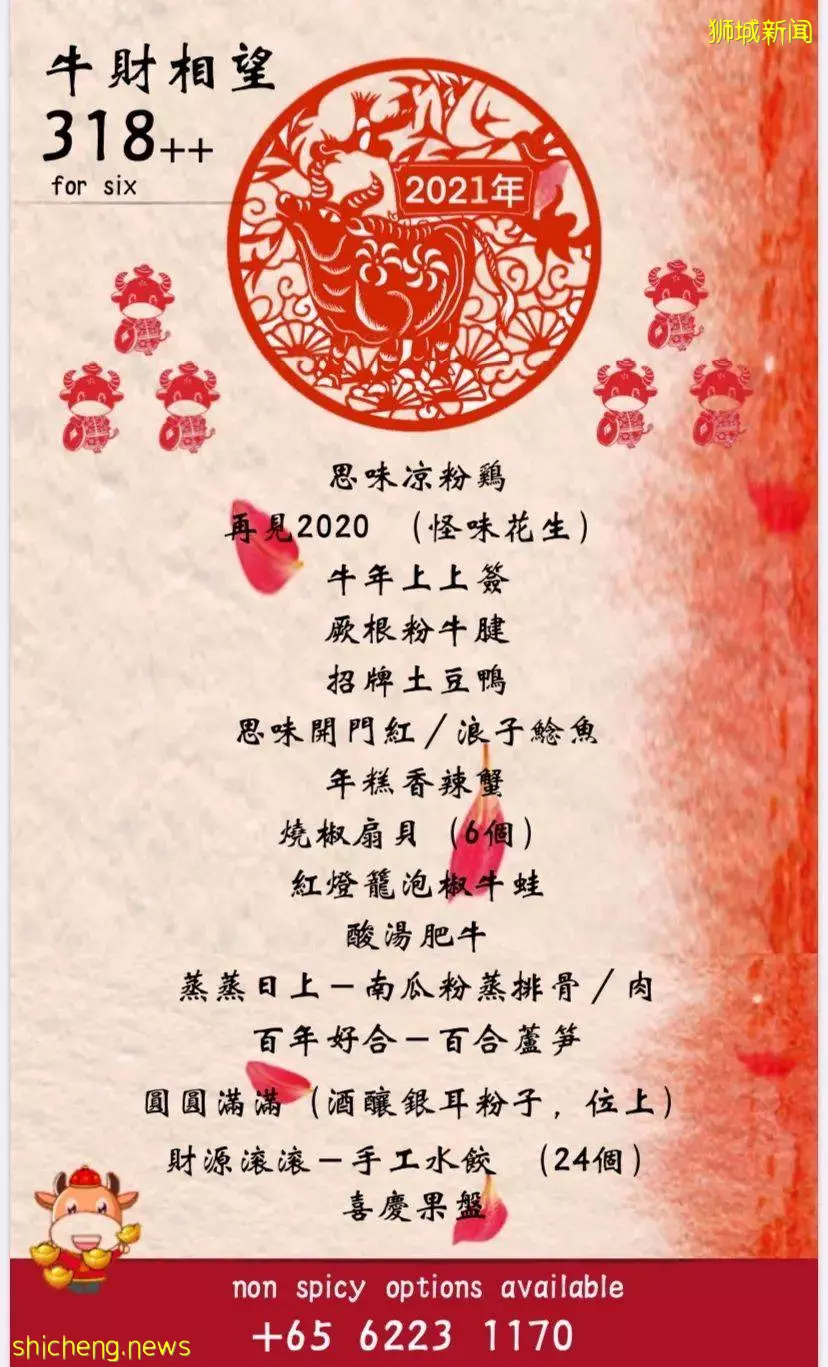 狮城新闻
牛財相望
318++
for six
2021年
思味凉粉鷄
再見2020 （怪味花生）
牛年上上簽
厥根粉牛腱
招牌土豆鴨
思味開門紅／浪子鯰魚
年糕香辣蟹
燒椒扇貝（6個）
紅燈籠泡椒牛蛙
酸湯肥牛
蒸蒸日上－南瓜粉蒸排骨／肉
百年好合－百合蘆笋
圓圓滿滿（酒釀銀耳粉子，位上）
財源滚滚－手工水餃 （24個）
喜慶果盤
non spicy options available
+65 6223 1170
shicheng.news